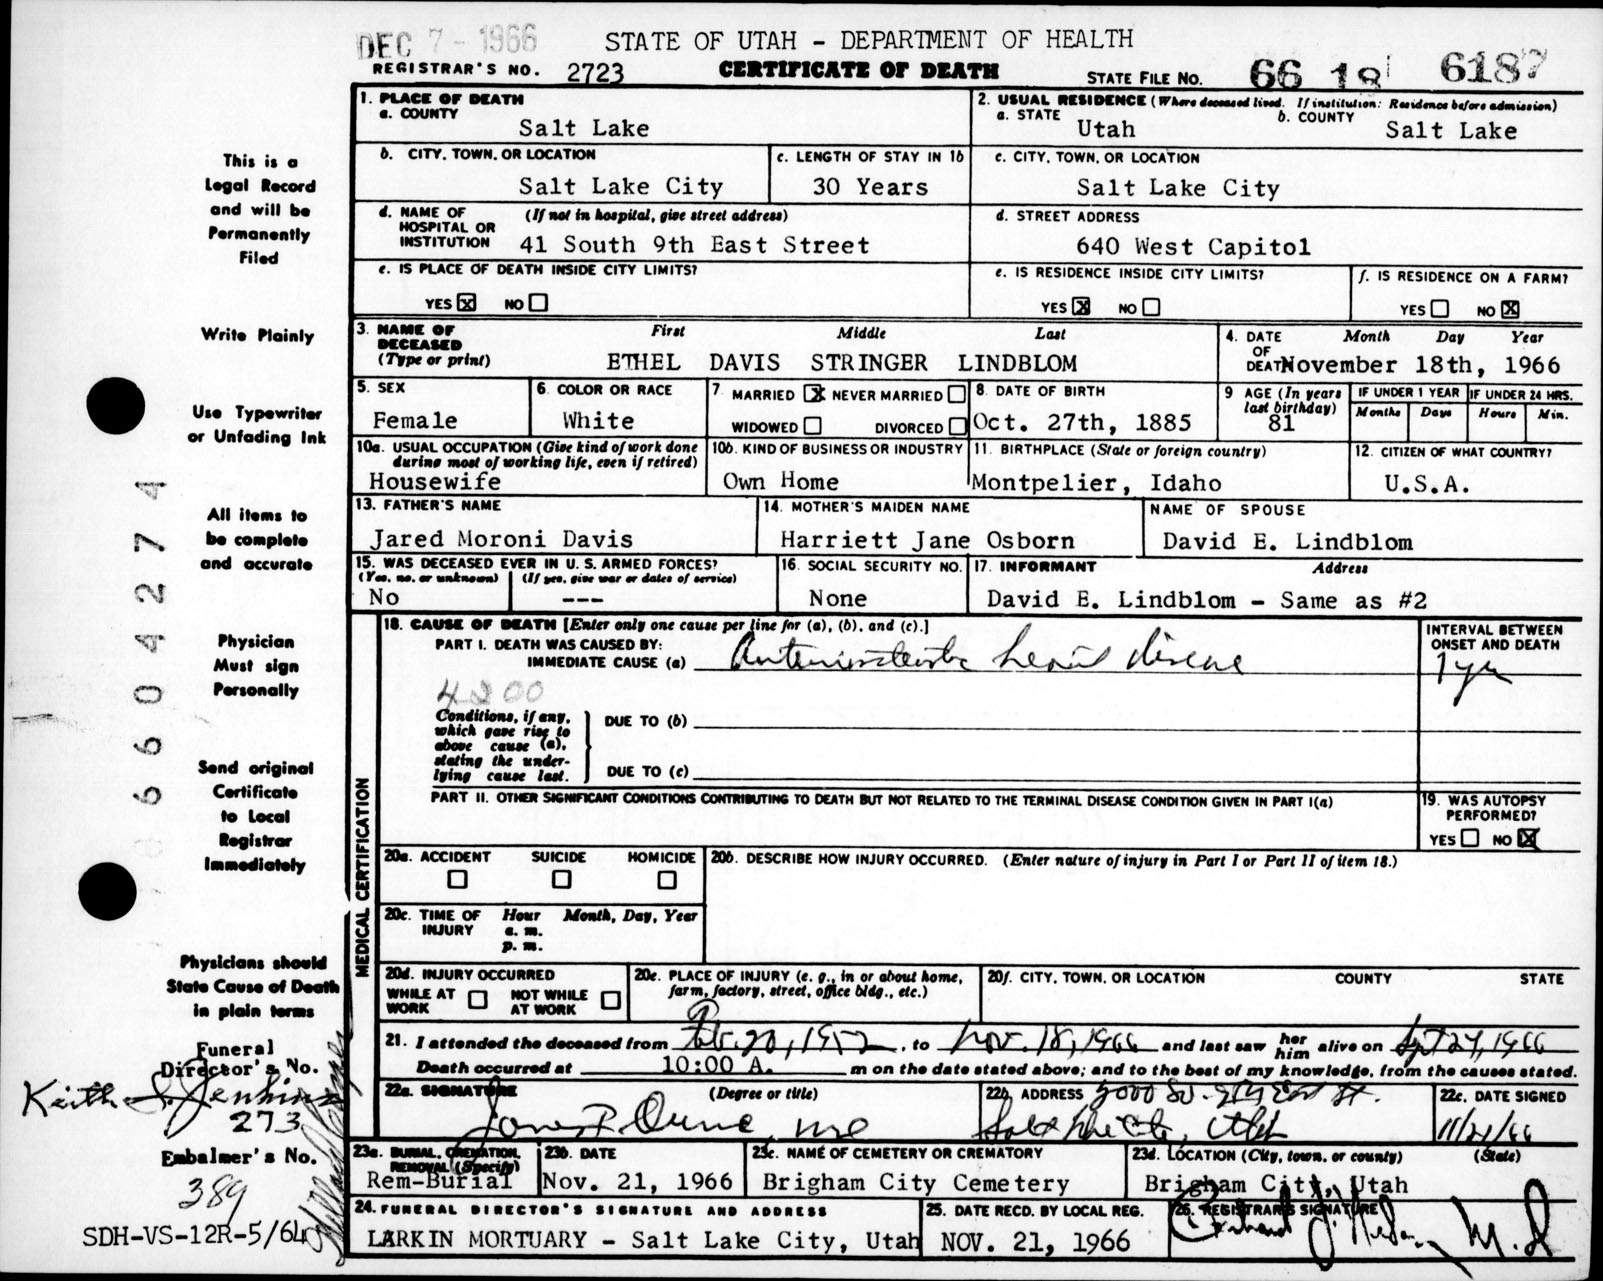 DEC 7 - 1966
STATE OF UTAH - DEPARTMENT OF HEALTH
REGISTRAR'S NO. 2723
CERTIFICATE OF DEATH
STATE FILE NO. 66 18 6187
This is a
Legal Record
and will be
Permanently
Filed
Write Plainly
Use Typewriter
or Unfading Ink
All items to
be complete
and accurate
Physician
Must sign
Personally
Send original
Certificate
to Local
Registrar
Immediately
Physicians should
State Cause of Death
in plain terms
Funeral
Director's No.
Keith S. Jenkins
273
Embalmer's No.
389
SDH-VS-12R-5/64
6604274
1. PLACE OF DEATH
a. COUNTY
Salt Lake
2. USUAL RESIDENCE (Where deceased lived. If institution: Residence before admission)
a. STATE Utah b. COUNTY Salt Lake
b. CITY, TOWN, OR LOCATION
Salt Lake City
c. LENGTH OF STAY IN 1b
30 Years
c. CITY, TOWN, OR LOCATION
Salt Lake City
d. NAME OF HOSPITAL OR INSTITUTION (If not in hospital, give street address)
41 South 9th East Street
d. STREET ADDRESS
640 West Capitol
e. IS PLACE OF DEATH INSIDE CITY LIMITS?
YES X NO
e. IS RESIDENCE INSIDE CITY LIMITS?
YES X NO
f. IS RESIDENCE ON A FARM?
YES NO X
3. NAME OF DECEASED (Type or print)
First Middle Last
ETHEL DAVIS STRINGER LINDBLOM
4. DATE OF DEATH Month Day Year
November 18th, 1966
5. SEX
Female
6. COLOR OR RACE
White
7. MARRIED X NEVER MARRIED
WIDOWED DIVORCED
8. DATE OF BIRTH
Oct. 27th, 1885
9 AGE (In years last birthday)
81
IF UNDER 1 YEAR
Months Days
IF UNDER 24 HRS.
Hours Min.
10a. USUAL OCCUPATION (Give kind of work done during most of working life, even if retired)
Housewife
10b. KIND OF BUSINESS OR INDUSTRY
Own Home
11. BIRTHPLACE (State or foreign country)
Montpelier, Idaho
12. CITIZEN OF WHAT COUNTRY?
U.S.A.
13. FATHER'S NAME
Jared Moroni Davis
14. MOTHER'S MAIDEN NAME
Harriett Jane Osborn
NAME OF SPOUSE
David E. Lindblom
15. WAS DECEASED EVER IN U. S. ARMED FORCES?
(Yes, no, or unknown) (If yes, give war or dates of service)
No ---
16. SOCIAL SECURITY NO.
None
17. INFORMANT Address
David E. Lindblom - Same as #2
18. CAUSE OF DEATH [Enter only one cause per line for (a), (b), and (c).]
PART I. DEATH WAS CAUSED BY:
IMMEDIATE CAUSE (a) Arteriosclerotic heart disease
INTERVAL BETWEEN ONSET AND DEATH
1 yr
4200
Conditions, if any,
which gave rise to
above cause (a),
stating the under-
lying cause last.
DUE TO (b)
DUE TO (c)
PART II. OTHER SIGNIFICANT CONDITIONS CONTRIBUTING TO DEATH BUT NOT RELATED TO THE TERMINAL DISEASE CONDITION GIVEN IN PART I(a)
19. WAS AUTOPSY PERFORMED?
YES NO X
MEDICAL CERTIFICATION
20a. ACCIDENT SUICIDE HOMICIDE
20b. DESCRIBE HOW INJURY OCCURRED. (Enter nature of injury in Part I or Part II of item 18.)
20c. TIME OF INJURY Hour Month, Day, Year
a. m.
p. m.
20d. INJURY OCCURRED
WHILE AT WORK NOT WHILE AT WORK
20e. PLACE OF INJURY (e. g., in or about home, farm, factory, street, office bldg., etc.)
20f. CITY, TOWN, OR LOCATION COUNTY STATE
21. I attended the deceased from Feb. 20, 1952, to Nov. 18, 1966 and last saw her him alive on Sept 24, 1966
Death occurred at 10:00 A. m on the date stated above; and to the best of my knowledge, from the causes stated.
22a. SIGNATURE (Degree or title)
22b. ADDRESS
Salt Lake City, Utah
22c. DATE SIGNED
11/21/66
23a. BURIAL, CREMATION, REMOVAL (Specify)
Rem-Burial
23b. DATE
Nov. 21, 1966
23c. NAME OF CEMETERY OR CREMATORY
Brigham City Cemetery
23d. LOCATION (City, town, or county) (State)
Brigham City, Utah
24. FUNERAL DIRECTOR'S SIGNATURE AND ADDRESS
LARKIN MORTUARY - Salt Lake City, Utah
25. DATE RECD. BY LOCAL REG.
NOV. 21, 1966
26. REGISTRAR'S SIGNATURE
M.D.